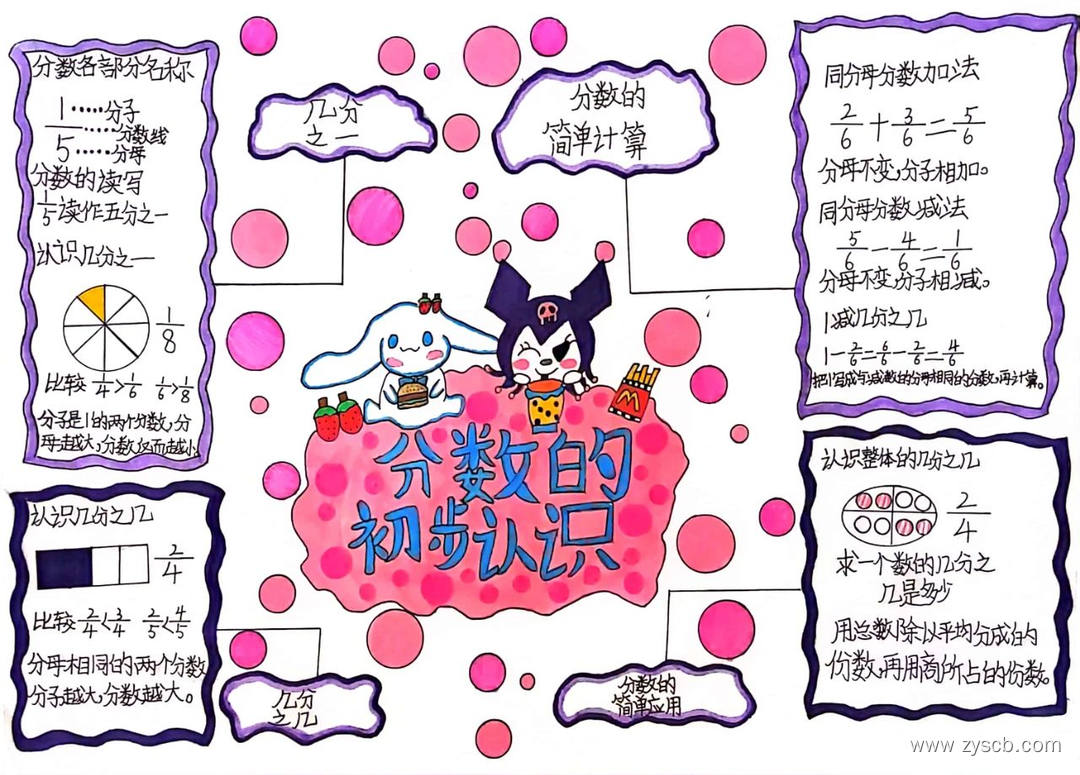 分数各部分名称
1……分子
——……分数线
5……分母
分数的读写
1/5读作五分之一
认识几分之一
1/8
比较 1/4>1/6 1/6>1/8
分子是1的两个分数,分
母越大,分数反而越小。
几分
之一
分数的
简单计算
同分母分数加法
2/6+3/6=5/6
分母不变,分子相加。
同分母分数减法
5/6-4/6=1/6
分母不变,分子相减。
1减几分之几
1-2/6=6/6-2/6=4/6
把1写成与减数的分母相同的分数,再计算。
分数的
初步认识
认识几分之几
2/4
比较 2/4<3/4 2/5<4/5
分母相同的两个分数
分子越大,分数越大。
几分
之几
分数的
简单应用
认识整体的几分之几
2/4
求一个数的几分之
几是多少
用总数除以平均分成的
份数,再用商所占的份数。
www.zyscb.com